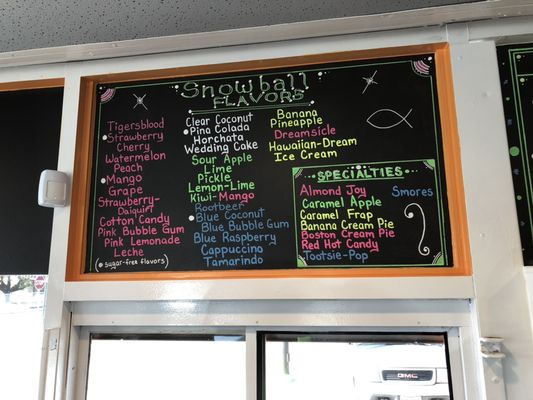 Snowball
FLAVORS
Tigersblood
Strawberry
Cherry
Watermelon
Peach
Mango
Grape
Strawberry-
Daiquiri
Cotton Candy
Pink Bubble Gum
Pink Lemonade
Leche
(• sugar-free flavors)
Clear Coconut
Pina Colada
Horchata
Wedding Cake
Sour Apple
Lime
Pickle
Lemon-Lime
Kiwi-Mango
Rootbeer
Blue Coconut
Blue Bubble Gum
Blue Raspberry
Cappuccino
Tamarindo
Banana
Pineapple
Dreamsicle
Hawaiian-Dream
Ice Cream
SPECIALTIES
Almond Joy
Caramel Apple
Caramel Frap
Banana Cream Pie
Boston Cream Pie
Red Hot Candy
Tootsie-Pop
Smores
GMC